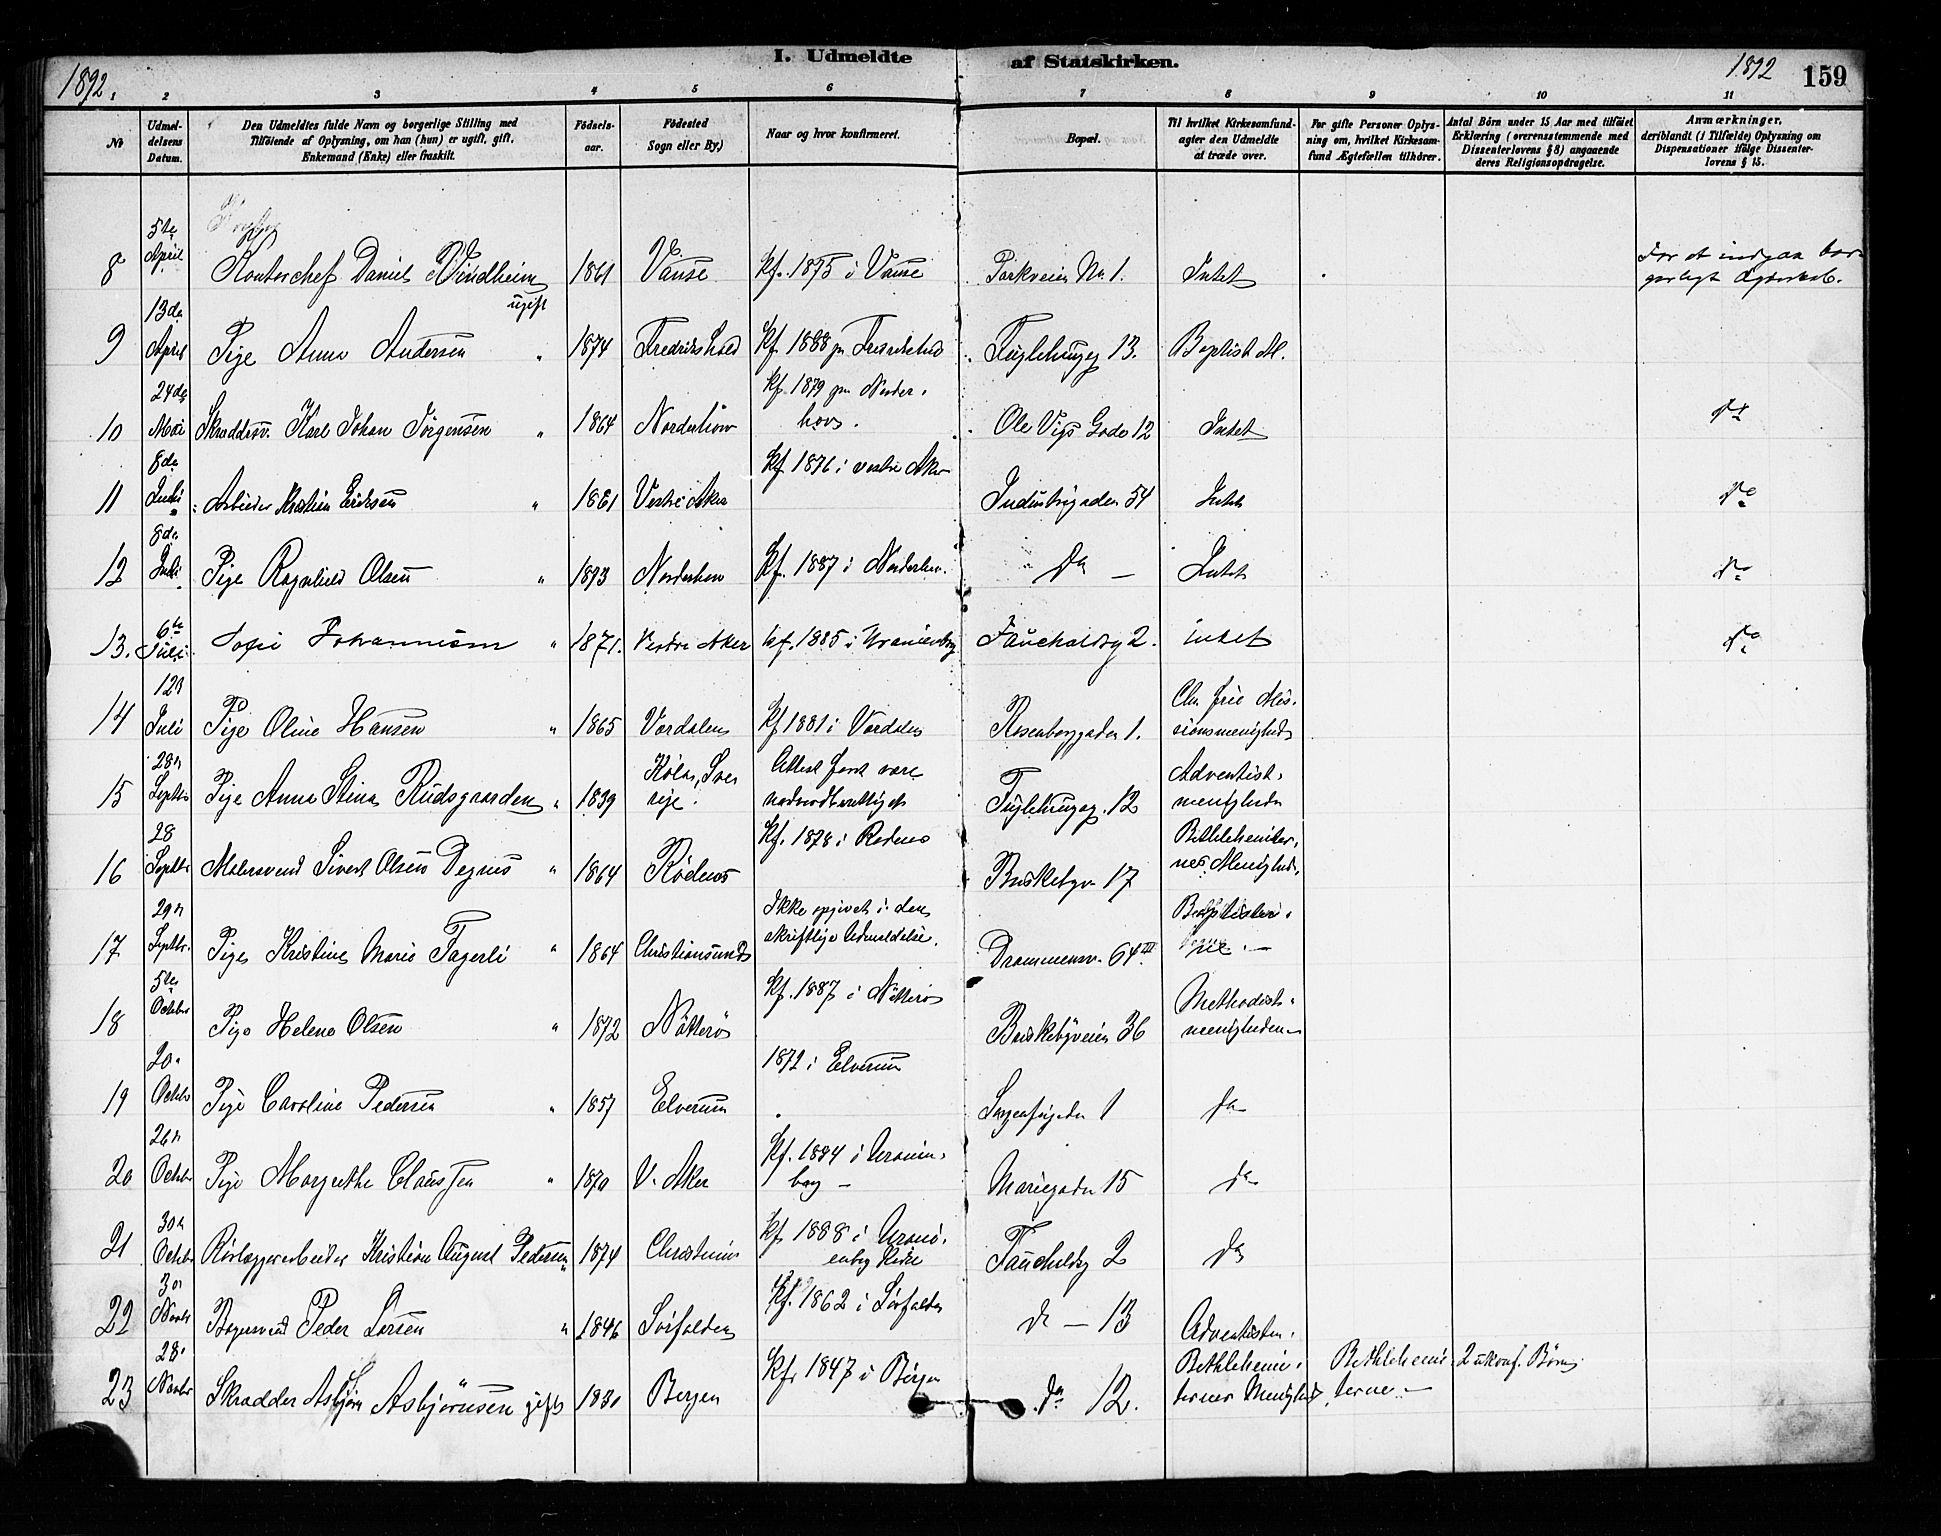 I. Udmeldte af Statskirken.
1892. 1892 159
1 2 3 4 5 6 7 8 9 10 11
No
Udmel-
delsens
Datum.
Den Udmeldtes fulde Navn og borgerlige Stilling med
Tilföiende af Oplysning, om han (hun) er ugift, gift,
Enkemand (Enke) eller fraskilt.
Födsels-
aar.
Födested
Sogn eller By.)
Naar og hvor konfirmeret.
Bopæl.
Til hvilket Kirkesamfund-
agter den Udmeldte
at træde over.
For gifte Personer Oplys-
ning om, hvilket Kirkesam-
fund Ægtefællen tilhörer.
Antal Börn under 15 Aar med tilföiet
Erklæring (overensstemmende med
Dissenterlovens § 8) angaaende
deres Religionsopdragelse.
Anmærkninger,
deriblandt (i Tilfælde) Oplysning om
Dispensationer ifölge Dissenter-
lovens § 15.
8 5te April Kontorchef Daniel Vindheim ugift 1861 Vanse Kf. 1875 i Vanse Parkveien No 1. Intet For at indgaa bor-
gerligt Ægteskab.
9 13de April Pige Anna Andersen " 1874 Fredrikshald Kf. 1888 Fredrikshald Fuglehaugg 13. Baptist M.
10 24de Mai Skræddersv. Karl Johan Jörgensen " 1864 Norderhov Kf. 1879 Norder-
hov. Ole Vigs Gade 12 Intet do
11 8de Juli Arbeider Kristian Eriksen " 1861 Vestre Aker Kf. 1876 i vestre Aker Industrigaden 54 Intet do
12 8de Juli Pige Ragnhild Olsen " 1873 Norderhov Kf. 1887 i Norderhov. do — Intet do
13. 6te Juli Sofie Johannesen " 1871. Vestre Aker kf. 1885 i Uranienborg Fauchaldsg 2. intet do
14 12 Juli Pige Oline Hansen " 1865 Værdalen Kf 1881 i Værdalen Rosenborggaden 1. Chr. frie Mis-
sionsmenighed
15 28 Septbr Pige Anna Stina Rudsgaarden " 1839 Köla, Sve-
rige. Attest for at være
nadverdberettiget Fuglehaugg. 12 Adventist-
menigheden
16 28 Septbr Malersvend Sivert Olsen Degnes " 1864 Rödenes Kf. 1878 i Rödenes Briskebyv 17 Bethlehemiter-
nes Menighed.
17 29 Septbr. Pige Kristine Marie Fagerli " 1864 Christiansund Ikke opgivet i den
skriftlige Udmeldelse. Drammensv. 64 III Baptister-
ne. —
18 5te October Pige Helene Olsen " 1872 Nötterö Kf. 1887 i Nötterö Briskebyveien 36 Methodist-
menigheden
19 20. Octbr Pige Caroline Pedersen " 1857 Elverum 1872 i Elverum Sorgenfrigaden 1 do
20 26 Octbr Pige Margrethe Claussen " 1870 V. Aker Kf. 1884 i Uranien-
borg — Mariegaden 15 do
21 30 Octbr Rörlæggerarbeider Kristian August Pedersen " 1874 Christiania Kf. 1888 i Urani-
enborg Kirke Fauchaldsg 2 do
22 3 Novbr Bagersvend Peder Larsen " 1846 Sörfolden Kf. 1862 i Sörfolden do — 13 Adventisten-
23 28 Novbr Skrædder Asbjörn Asbjörnsen gift 1830 Bergen Kf. 1847 i Bergen do 12. Bethlehemi-
ternes Menighed Bethlehemi-
terne — 2 ukonf. Börn